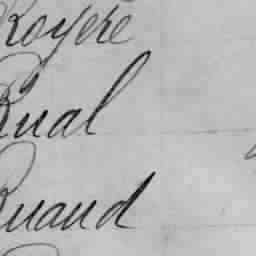 Royère
Rual
Ruaud